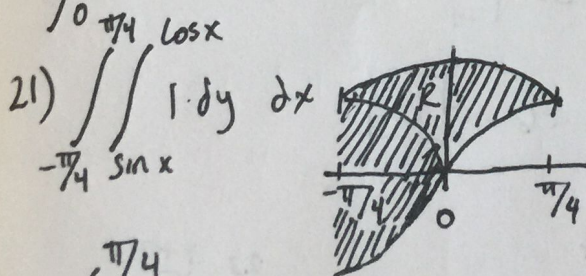 0
21) ∫_{-π/4}^{π/4} ∫_{sin x}^{cos x} 1·dy dx
R
-π/4 0 π/4
π/4